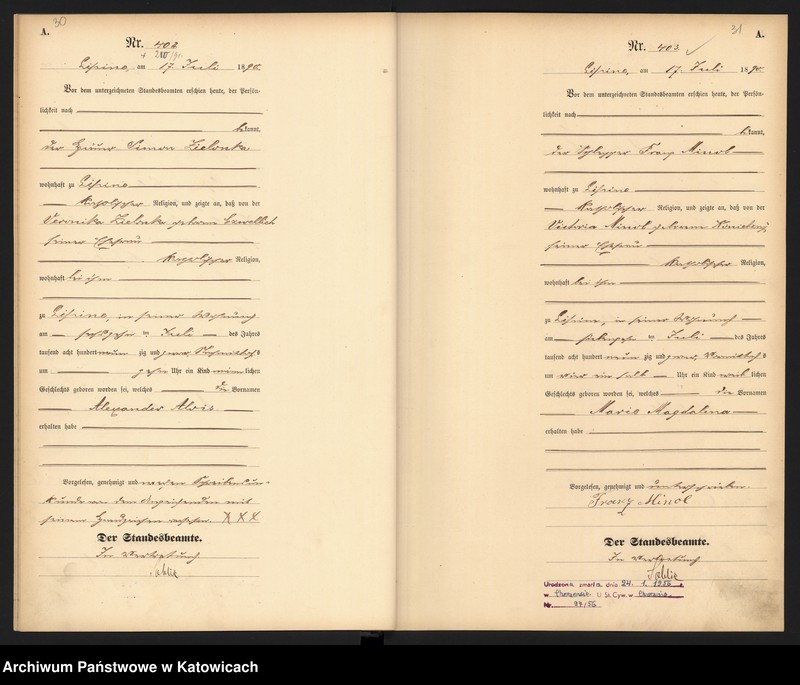 30
A.
Nr. 402
Lipine, am 17. Juli 1890.
Vor dem unterzeichneten Standesbeamten erschien heute, der Persön-
lichkeit nach
bekannt,
der Häuer Simon Zielonka
wohnhaft zu Lipine
katholischer Religion, und zeigte an, daß von der
Veronika Zielonka geborene
seiner Ehefrau
katholischer Religion,
wohnhaft bei ihm
zu Lipine, in seiner Wohnung
am des Juli des Jahres
tausend acht hundert neun zig und zwar Nachmittags
um Uhr ein Kind männlichen
Geschlechts geboren worden sei, welches die Vornamen
Alexander Alois
erhalten habe
Vorgelesen, genehmigt und wegen Schreibensun-
kunde von dem Anzeigenden mit
seinem Handzeichen versehen. XXX
Der Standesbeamte.
In Vertretung
31
A.
Nr. 403
Lipine, am 17. Juli 1890.
Vor dem unterzeichneten Standesbeamten erschien heute, der Persön-
lichkeit nach
bekannt,
der Schlepper Franz Minol
wohnhaft zu Lipine
katholischer Religion, und zeigte an, daß von der
Victoria Minol geborene
seiner Ehefrau
katholischer Religion,
wohnhaft bei ihm
zu Lipine, in seiner Wohnung
am des Juli des Jahres
tausend acht hundert neun zig und zwar Vormittags
um vier ein halb Uhr ein Kind weiblichen
Geschlechts geboren worden sei, welches die Vornamen
Maria Magdalena
erhalten habe
Vorgelesen, genehmigt und unterschrieben.
Franz Minol
Der Standesbeamte.
In Vertretung
Urodzona zmarła dnia 24. 1. 1956 r.
w Chorzowie. U. St. Cyw. w Chorzowie
Nr. 99/56
Archiwum Państwowe w Katowicach